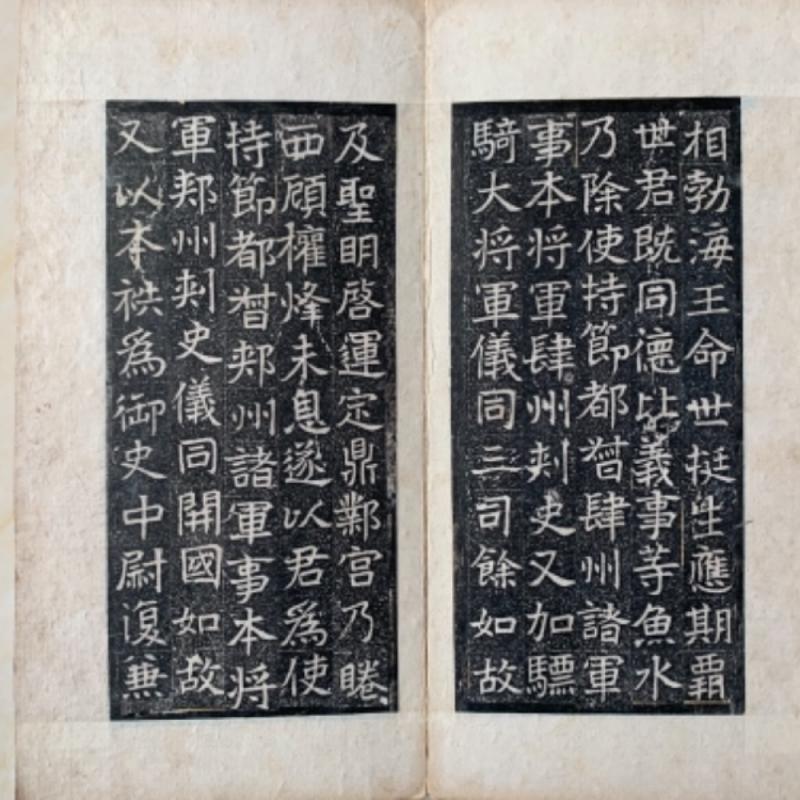 相勃海王命世挺生應期霸
世君既同德比義事等魚水
乃除使持節都督肆州諸軍
事本将軍肆州刾史又加驃
騎大将軍儀同三司餘如故
及聖明啓運定鼎鄴宮乃睠
西顧權烽未息遂以君爲使
持節都督郟州諸軍事本将
軍郟州刾史儀同開國如故
又以本袟爲御史中尉復兼